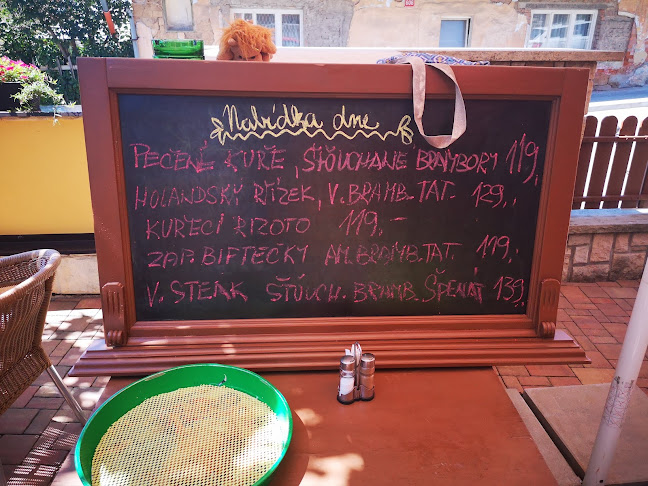 Nabídka dne
PEČENÉ KUŘE, ŠŤOUCHANÉ BRAMBORY 119,
HOLANDSKÝ ŘÍZEK, V. BRAMB. TAT. 129,-
KUŘECÍ RIZOTO 119,-
ZAP. BIFTEČKY AM. BRAMB. TAT. 119,-
V. STEAK ŠŤOUCH. BRAMB. ŠPENÁT 139,